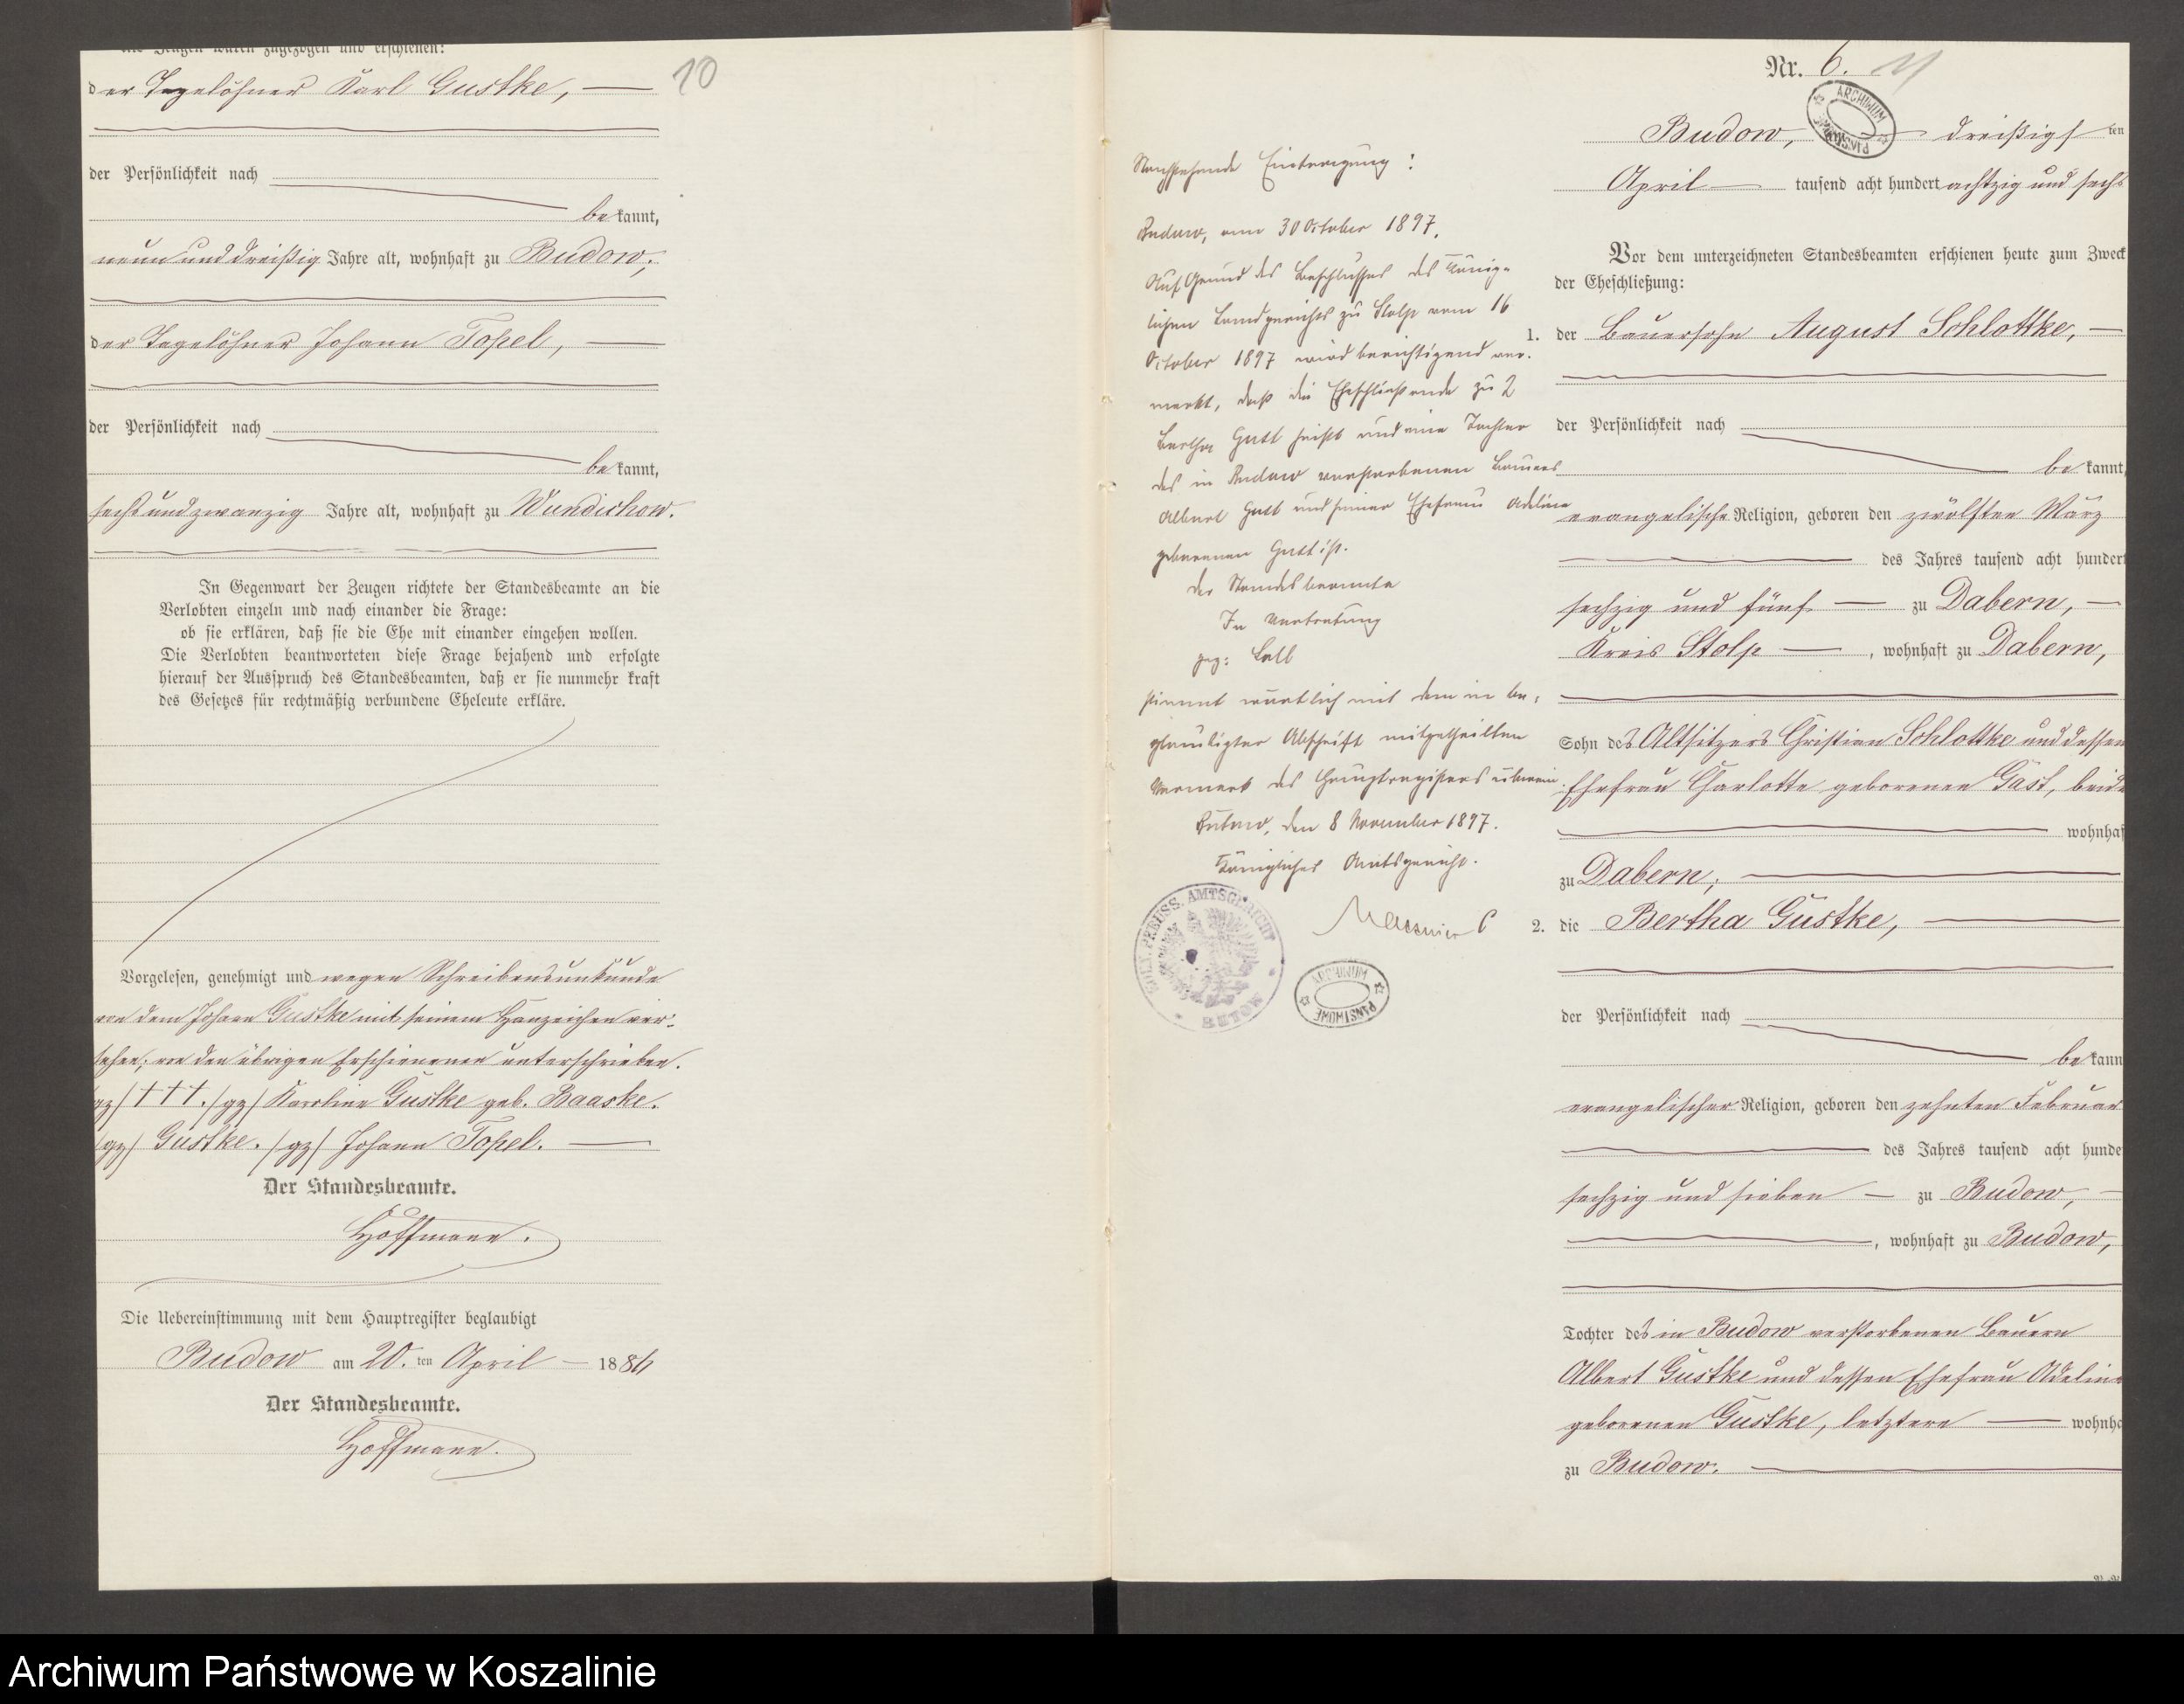 die Zeugen waren zugezogen und erschienen:
der Tagelöhner Karl Gustke,
10
der Persönlichkeit nach
be kannt,
neun und dreißig Jahre alt, wohnhaft zu Budow;
der Tagelöhner Johann Topel,
der Persönlichkeit nach
be kannt,
sechs und zwanzig Jahre alt, wohnhaft zu Wundichow.
In Gegenwart der Zeugen richtete der Standesbeamte an die
Verlobten einzeln und nach einander die Frage:
ob sie erklären, daß sie die Ehe mit einander eingehen wollen.
Die Verlobten beantworteten diese Frage bejahend und erfolgte
hierauf der Ausspruch des Standesbeamten, daß er sie nunmehr kraft
des Gesetzes für rechtmäßig verbundene Eheleute erkläre.
Vorgelesen, genehmigt und wegen Schreibensunkunde
von dem Johann Gustke mit seinem Handzeichen ver-
sehen; von den übrigen Erschienenen unterschrieben.
/gz/ ††† . /gz/ Karoline Gustke geb. Baaske.
/gz/ Gustke. /gz/ Johann Topel.
Der Standesbeamte.
Hoffmann.
Die Uebereinstimmung mit dem Hauptregister beglaubigt
Budow am 20. ten April 1886
Der Standesbeamte.
Hoffmann.
Nachstehende Eintragung:
Budow, am 30 October 1897.
Auf Grund des Beschlusses des König-
lichen Landgerichts zu Stolp vom 16
October 1897 wird berichtigend ver-
merkt, daß die Eheschließende zu 2
Bertha Gutt heißt und eine Tochter
des in Budow verstorbenen Bauers
Albert Gutt und seiner Ehefrau Adeline
geborenen Gutt ist.
Der Standesbeamte
In Vertretung
gez:
stimmt wörtlich mit dem in be-
glaubigter Abschrift mitgetheilten
Vermerk des Hauptregisters überein.
Bütow, den 8 November 1897.
Königliches Amtsgericht.
KÖNIGL. PREUSS. AMTSGERICHT
* BÜTOW *
ARCHIWUM
PAŃSTWOWE
Nr. 6. 11
ARCHIWUM
PAŃSTWOWE
Budow, dreißigsten
April tausend acht hundert achtzig und sechs
Vor dem unterzeichneten Standesbeamten erschienen heute zum Zweck
der Eheschließung:
1. der Bauersohn August Schlottke,
der Persönlichkeit nach
be kannt,
evangelische Religion, geboren den zwölften März
des Jahres tausend acht hundert
sechzig und fünf zu Dabern,
Kreis Stolp, wohnhaft zu Dabern,
Sohn des Altsitzers Christian Schlottke und dessen
Ehefrau Charlotte geborenen Gast, beide
wohnhaf
zu Dabern;
2. die Bertha Gustke,
der Persönlichkeit nach
be kann
evangelischer Religion, geboren den zehnten Februar
des Jahres tausend acht hunde
sechzig und sieben zu Budow,
, wohnhaft zu Budow,
Tochter des in Budow verstorbenen Bauern
Albert Gustke und dessen Ehefrau Adeline
geborenen Gustke, letztere wohnha
zu Budow.
Archiwum Państwowe w Koszalinie